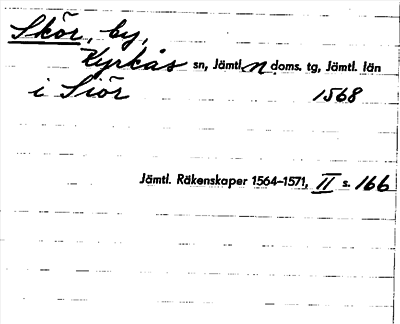 Skör, by,
Kyrkås sn, Jämtl. N. doms. tg, Jämtl. län
i Siör 1568
Jämtl. Räkenskaper 1564–1571, II s. 166